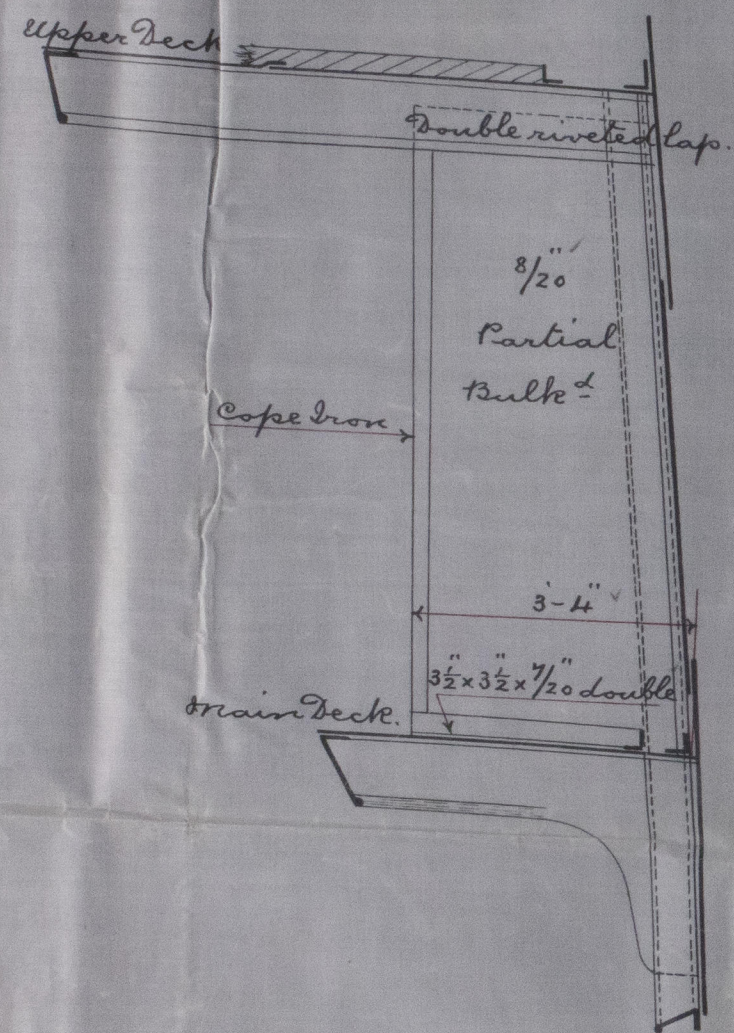 Upper Deck
Double riveted lap.
8/20"
Partial
Bulkd
Cope Iron
3'-4"
3½" x 3½" x 7/20" double
Main Deck.